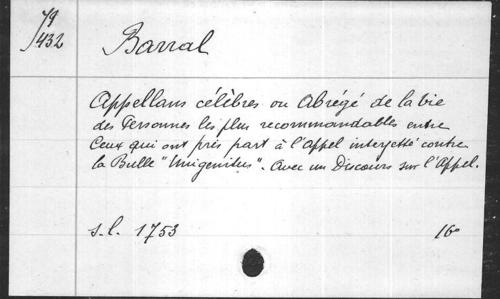 79
432
Barral
Appellans célèbres ou Abrégé de la vie
des Personnes les plus recommandables entre
Ceux qui ont pris part à l'Appel interjetté contre
la Bulle "Unigenitus". Avec un Discours sur l'Appel.
s.l. 1753 16°